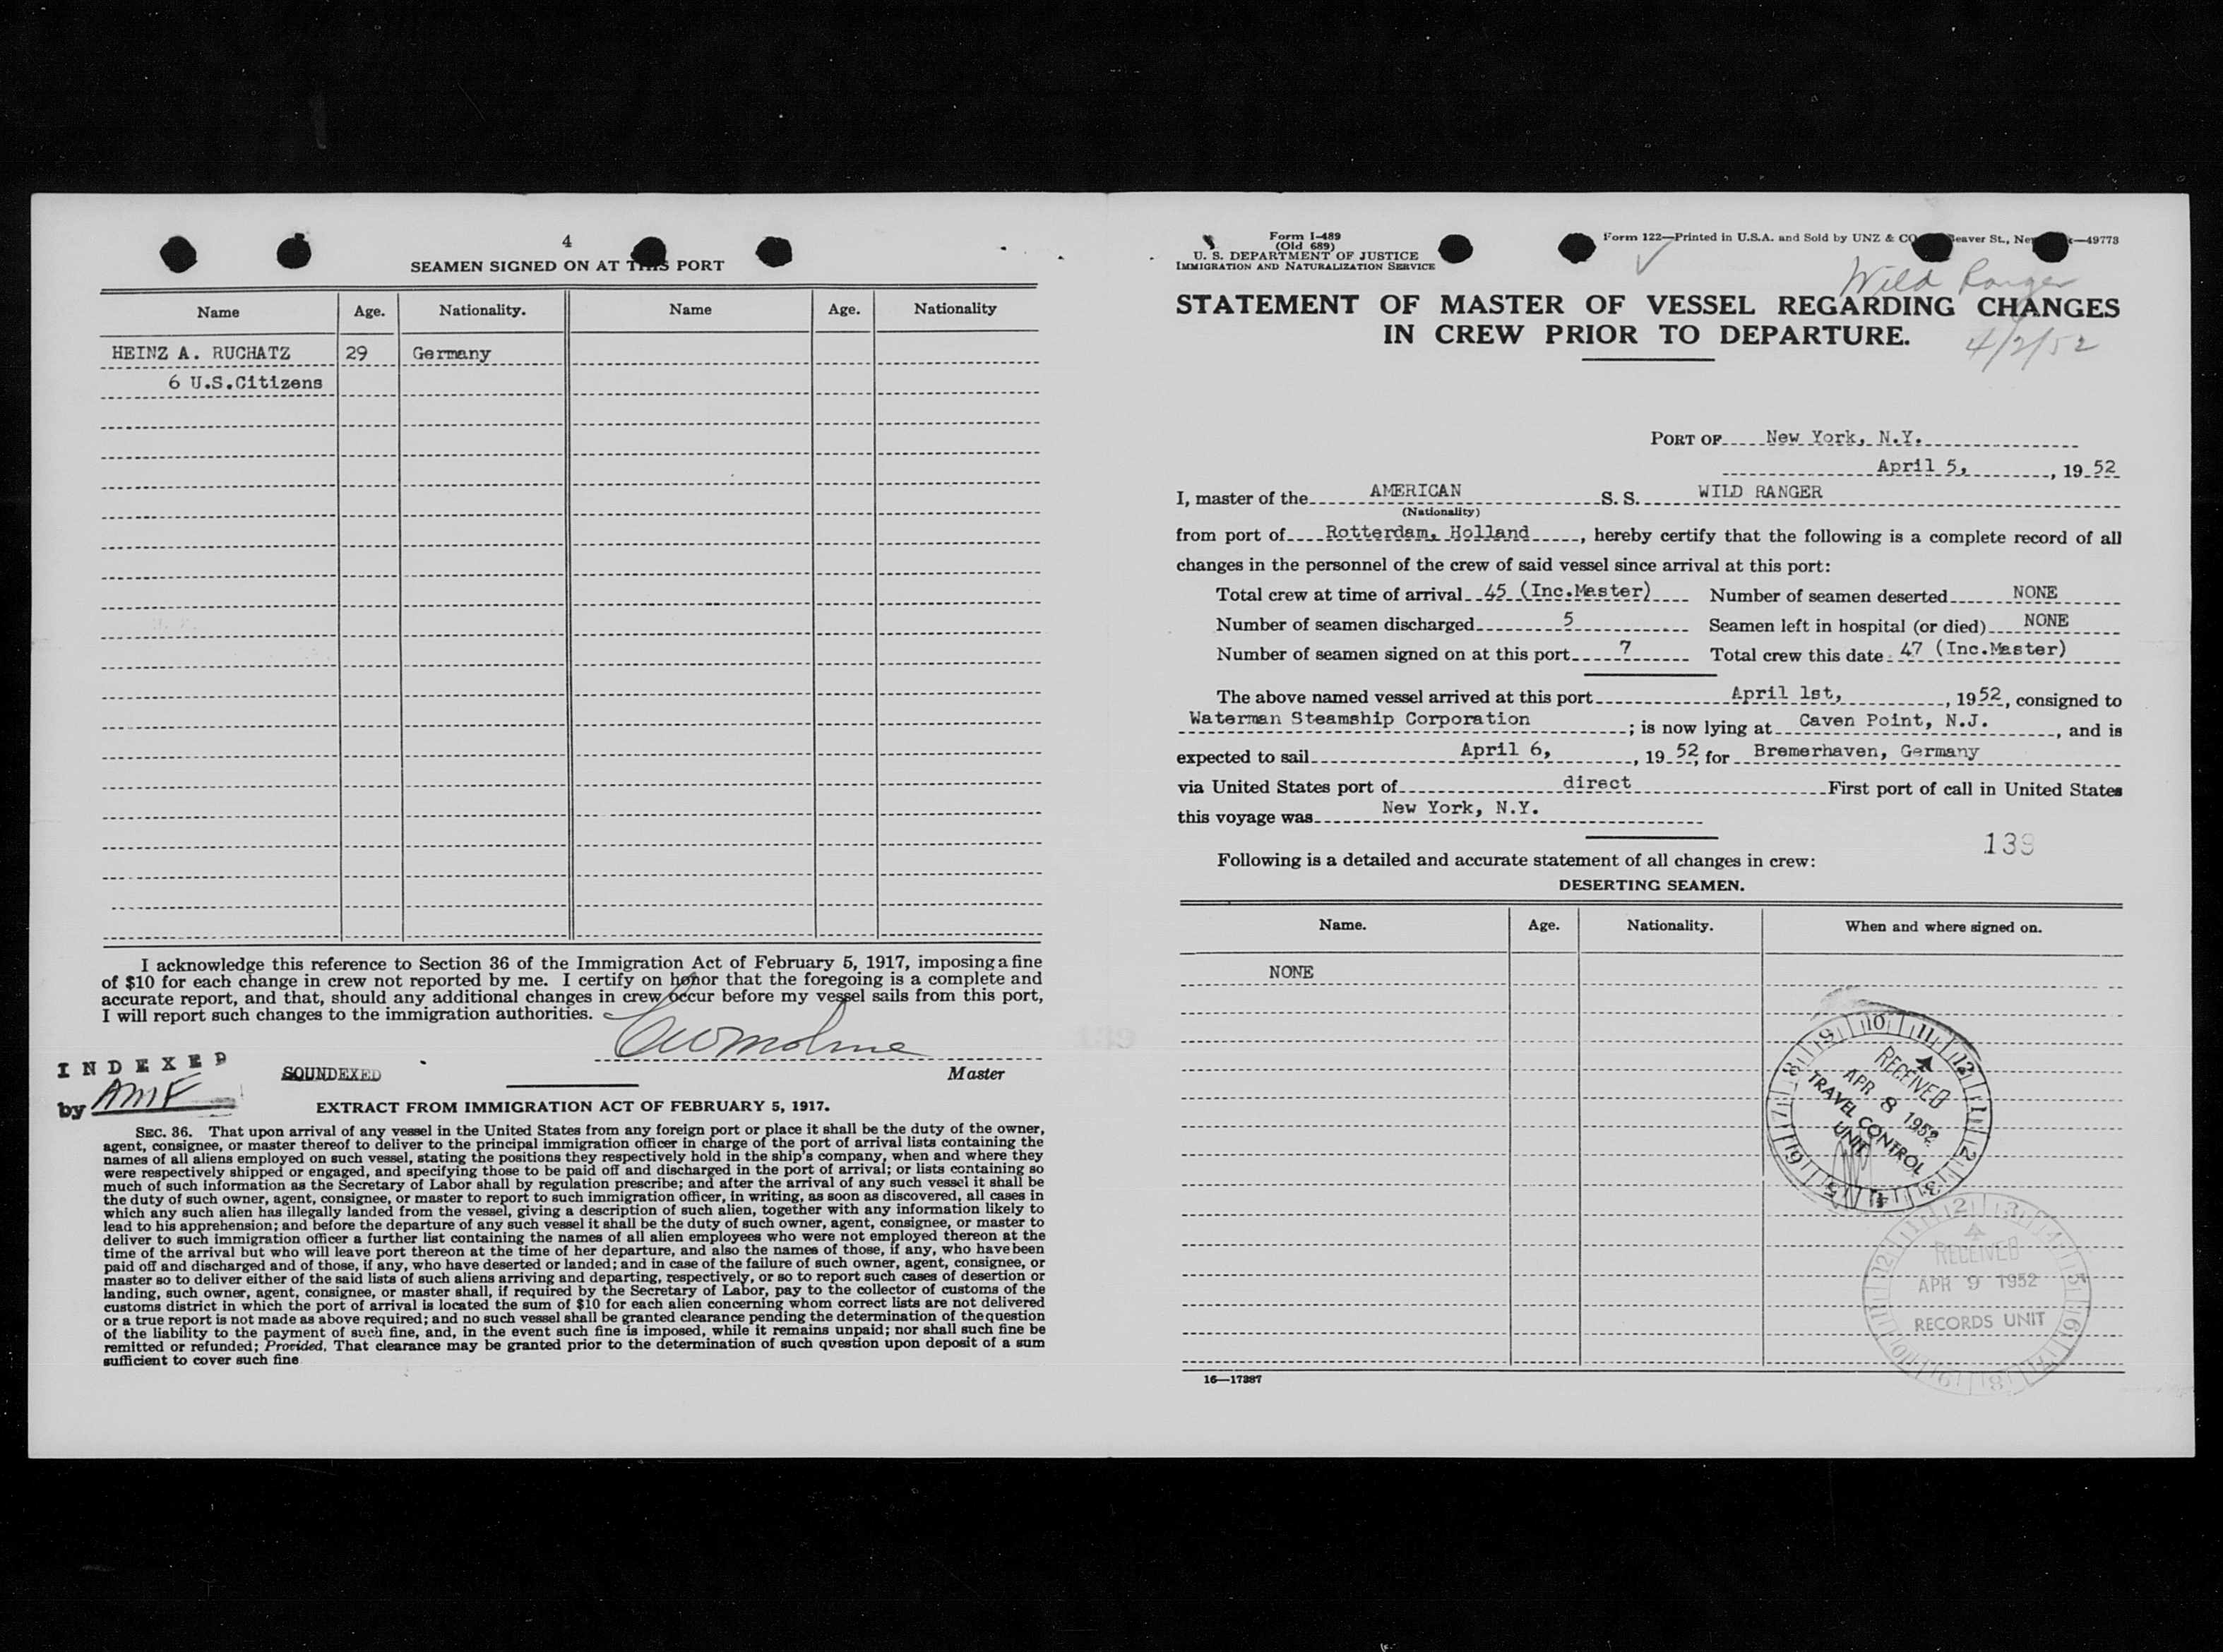 4
SEAMEN SIGNED ON AT THIS PORT
Name Age. Nationality. Name Age. Nationality
HEINZ A. RUCHATZ 29 Germany
6 U.S.Citizens
I acknowledge this reference to Section 36 of the Immigration Act of February 5, 1917, imposing a fine
of $10 for each change in crew not reported by me. I certify on honor that the foregoing is a complete and
accurate report, and that, should any additional changes in crew occur before my vessel sails from this port,
I will report such changes to the immigration authorities.
Master
INDEXED
by AMF
SOUNDEXED
EXTRACT FROM IMMIGRATION ACT OF FEBRUARY 5, 1917.
SEC. 36. That upon arrival of any vessel in the United States from any foreign port or place it shall be the duty of the owner,
agent, consignee, or master thereof to deliver to the principal immigration officer in charge of the port of arrival lists containing the
names of all aliens employed on such vessel, stating the positions they respectively hold in the ship's company, when and where they
were respectively shipped or engaged, and specifying those to be paid off and discharged in the port of arrival; or lists containing so
much of such information as the Secretary of Labor shall by regulation prescribe; and after the arrival of any such vessel it shall be
the duty of such owner, agent, consignee, or master to report to such immigration officer, in writing, as soon as discovered, all cases in
which any such alien has illegally landed from the vessel, giving a description of such alien, together with any information likely to
lead to his apprehension; and before the departure of any such vessel it shall be the duty of such owner, agent, consignee, or master to
deliver to such immigration officer a further list containing the names of all alien employees who were not employed thereon at the
time of the arrival but who will leave port thereon at the time of her departure, and also the names of those, if any, who have been
paid off and discharged and of those, if any, who have deserted or landed; and in case of the failure of such owner, agent, consignee, or
master so to deliver either of the said lists of such aliens arriving and departing, respectively, or so to report such cases of desertion or
landing, such owner, agent, consignee, or master shall, if required by the Secretary of Labor, pay to the collector of customs of the
customs district in which the port of arrival is located the sum of $10 for each alien concerning whom correct lists are not delivered
or a true report is not made as above required; and no such vessel shall be granted clearance pending the determination of the question
of the liability to the payment of such fine, and, in the event such fine is imposed, while it remains unpaid; nor shall such fine be
remitted or refunded; Provided, That clearance may be granted prior to the determination of such question upon deposit of a sum
sufficient to cover such fine
Form I-489
(Old 689)
U. S. DEPARTMENT OF JUSTICE
IMMIGRATION AND NATURALIZATION SERVICE
Form 122—Printed in U.S.A. and Sold by UNZ & CO Beaver St., New —49773
Wild Ranger
STATEMENT OF MASTER OF VESSEL REGARDING CHANGES
IN CREW PRIOR TO DEPARTURE.
4/2/52
PORT OF New York, N.Y.
April 5, , 19 52
I, master of the AMERICAN S. S. WILD RANGER
(Nationality)
from port of Rotterdam, Holland , hereby certify that the following is a complete record of all
changes in the personnel of the crew of said vessel since arrival at this port:
Total crew at time of arrival 45 (Inc.Master) Number of seamen deserted NONE
Number of seamen discharged 5 Seamen left in hospital (or died) NONE
Number of seamen signed on at this port 7 Total crew this date 47 (Inc.Master)
The above named vessel arrived at this port April 1st, , 1952, consigned to
Waterman Steamship Corporation ; is now lying at Caven Point, N.J. , and is
expected to sail April 6, , 19 52, for Bremerhaven, Germany
via United States port of direct First port of call in United States
this voyage was New York, N.Y.
139
Following is a detailed and accurate statement of all changes in crew:
DESERTING SEAMEN.
Name. Age. Nationality. When and where signed on.
NONE
RECEIVED
APR 8 1952
TRAVEL CONTROL
UNIT
RECEIVED
APR 9 1952
RECORDS UNIT
16—17387